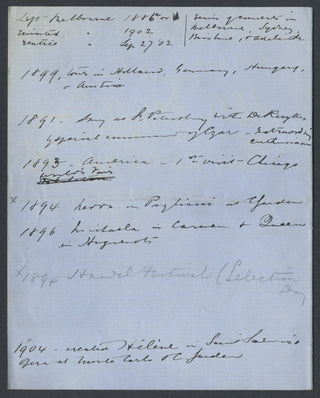 Left Melbourne 1886
revisited " 1902
arrived " Sep 27 '02
Seven concerts in
Melbourne, Sydney,
Brisbane, & Adelaide
1899, tour in Holland, Germany, Hungary,
& Austria
1891 - Sang at St Petersburg with De Reszkes
by special command of Czar - extraordinary
enthusiasm
1893 - America - 1st visit - Chicago
World's Fair
x 1894 Nedda in Pagliacci at Garden
1896 Micaela in Carmen & Queen
in Huguenots
x 1894 Handel Festival (Selection
Day
1904 - created Hélène in Saint Saëns's
opera at Monte Carlo & C Garden